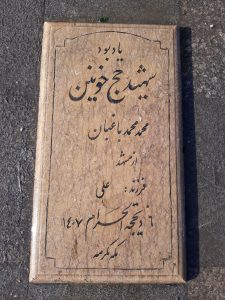 یادبود
شهید حج خونین
محمد محمد باغبان
از مشهد
فرزند: علی
۶ ذیحجه الحرام ۱۴۰۷
مکه مکرمه